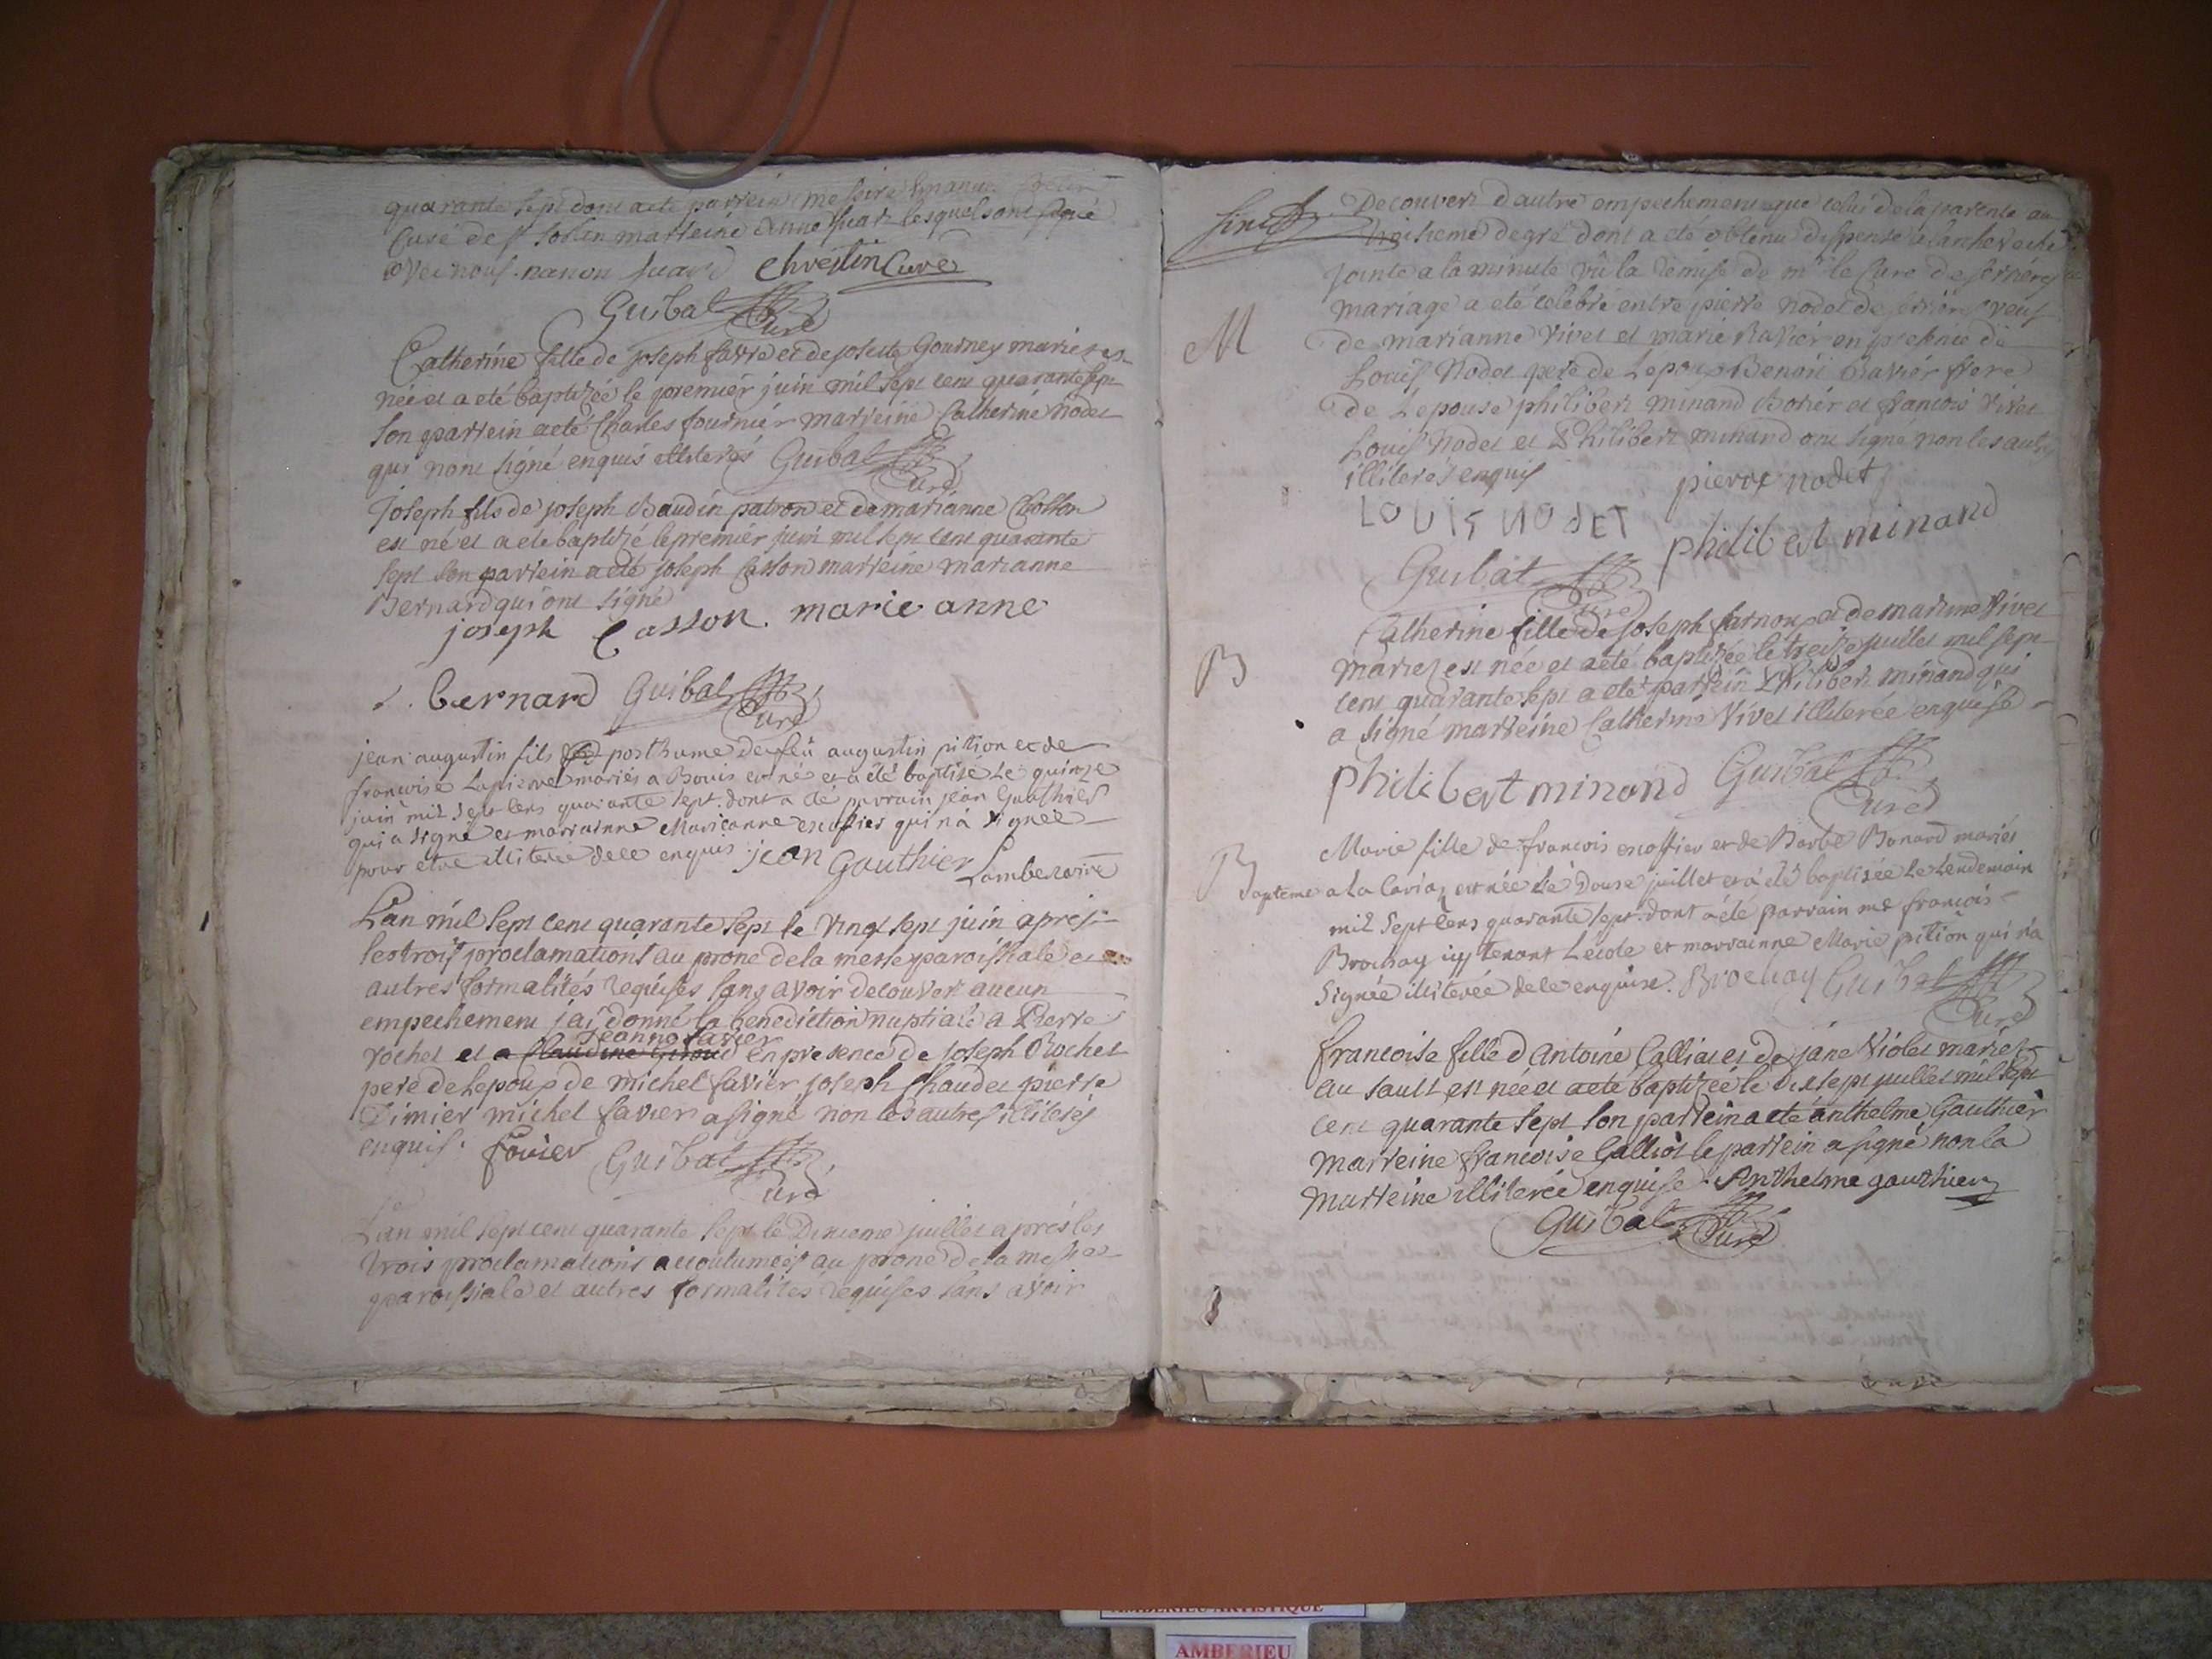 quarante sept dont a ete parrein messire
Curé de st Sorlin marreine anne suard lesquels ont signé
avec nous. nanon suard Chrestin Curé
Guibal Curé
Catherine fille de joseph favre et de joseste Gourney mariez es
née et a eté baptizée le premiér juin mil sept cent quarante sept
son parrein a eté Charles fourniér marreine Catherine Nodet
qui nont signé enquis illiterés Guibal Curé
Joseph fils de joseph Baudin patron et de marianne Cosson
est né et a eté baptizé le premiér juin mil sept cent quarante
sept son parrein a eté joseph Casson marreine marianne
Bernard qui ont signé
joseph Casson. marie anne
bernard Guibal Curé
jean augustin fils posthume de feü augustin pition et de
francoise Lapierre mariés a Bouis est né et a été baptisé Le quinze
juin mil sept cens quarante sept. dont a été parrain jean Gauthier
qui a signé et marrainne Marieanne escoffier qui n'a signée
pour etre illiterée de ce enquis. jean Gauthier Lambert vire
L'an mil sept cent quarante sept le vingt sept juin aprés
les trois proclamations au prone de la messe paroissiale et
autres formalités requises sans avoir decouvert aucun
empechement j'ai donné la benediction nuptiale a Pierre
Jeanne favier
rochet et a Claudine Giroud en presence de joseph Rochet
pere de lepoux de michel favier joseph Chaudet pierre
Dimier michel favier a signé non les autres illiterés
enquis. favier Guibal Curé
L'an mil sept cent quarante sept le Dixieme juillet aprés les
trois proclamations accoutumées au prone de la messe
paroissiale et autres formalités requises sans avoir
Decouvert d'autre empechement que celui de la parente au
troisieme degré dont a eté obtenu dispense a larcheveché
jointe a la minute vû la remise de mr le Curé de serriéres
M
mariage a eté celebré entre pierre Nodet de veuf
de marianne vivet et marie Raviér en presence de
Louis Nodet pere de Lepoux Benoit Raviér frere
de Lepouse philibert minand Botier et francois vivet
Louis Nodet et Philibert minand ont signé non les autres
illiteres enquis pierre nodet
LOUIS NODET philibert minand
Guibal Curé
B
Catherine fille de joseph farnoux et de marianne Vivet
mariez est née et a eté baptizée le treize juillet mil sept
cent quarante sept a eté parrein Philibert minand qui
a signé marreine Catherine Vivet illiterée enquise
philibert minand Guibal Curé
Marie fille de francois escoffier et de Barbe Bonard mariés
Bapteme a la est née Le Douse juillet et a été baptisée Le Lendemain
mil sept cens quarante sept. dont a été parrain me francois
Brochay icy tenant Lecole et marrainne Marie pition qui n'a
signée illiterée de ce enquise. Brochay Guibal Curé
francoise fille d'Antoine Calliat et de jane Violet mariez
au sault est née et a eté baptizée le dixsept juillet mil sept
cent quarante sept son parrein a eté anthelme Gauthiér
marreine francoise Galliot le parrein a signé non la
marreine illiterée enquise. Anthelme gauthier
Guibal Curé
AMBERIEU ARTISTIQUE
AMBERIEU